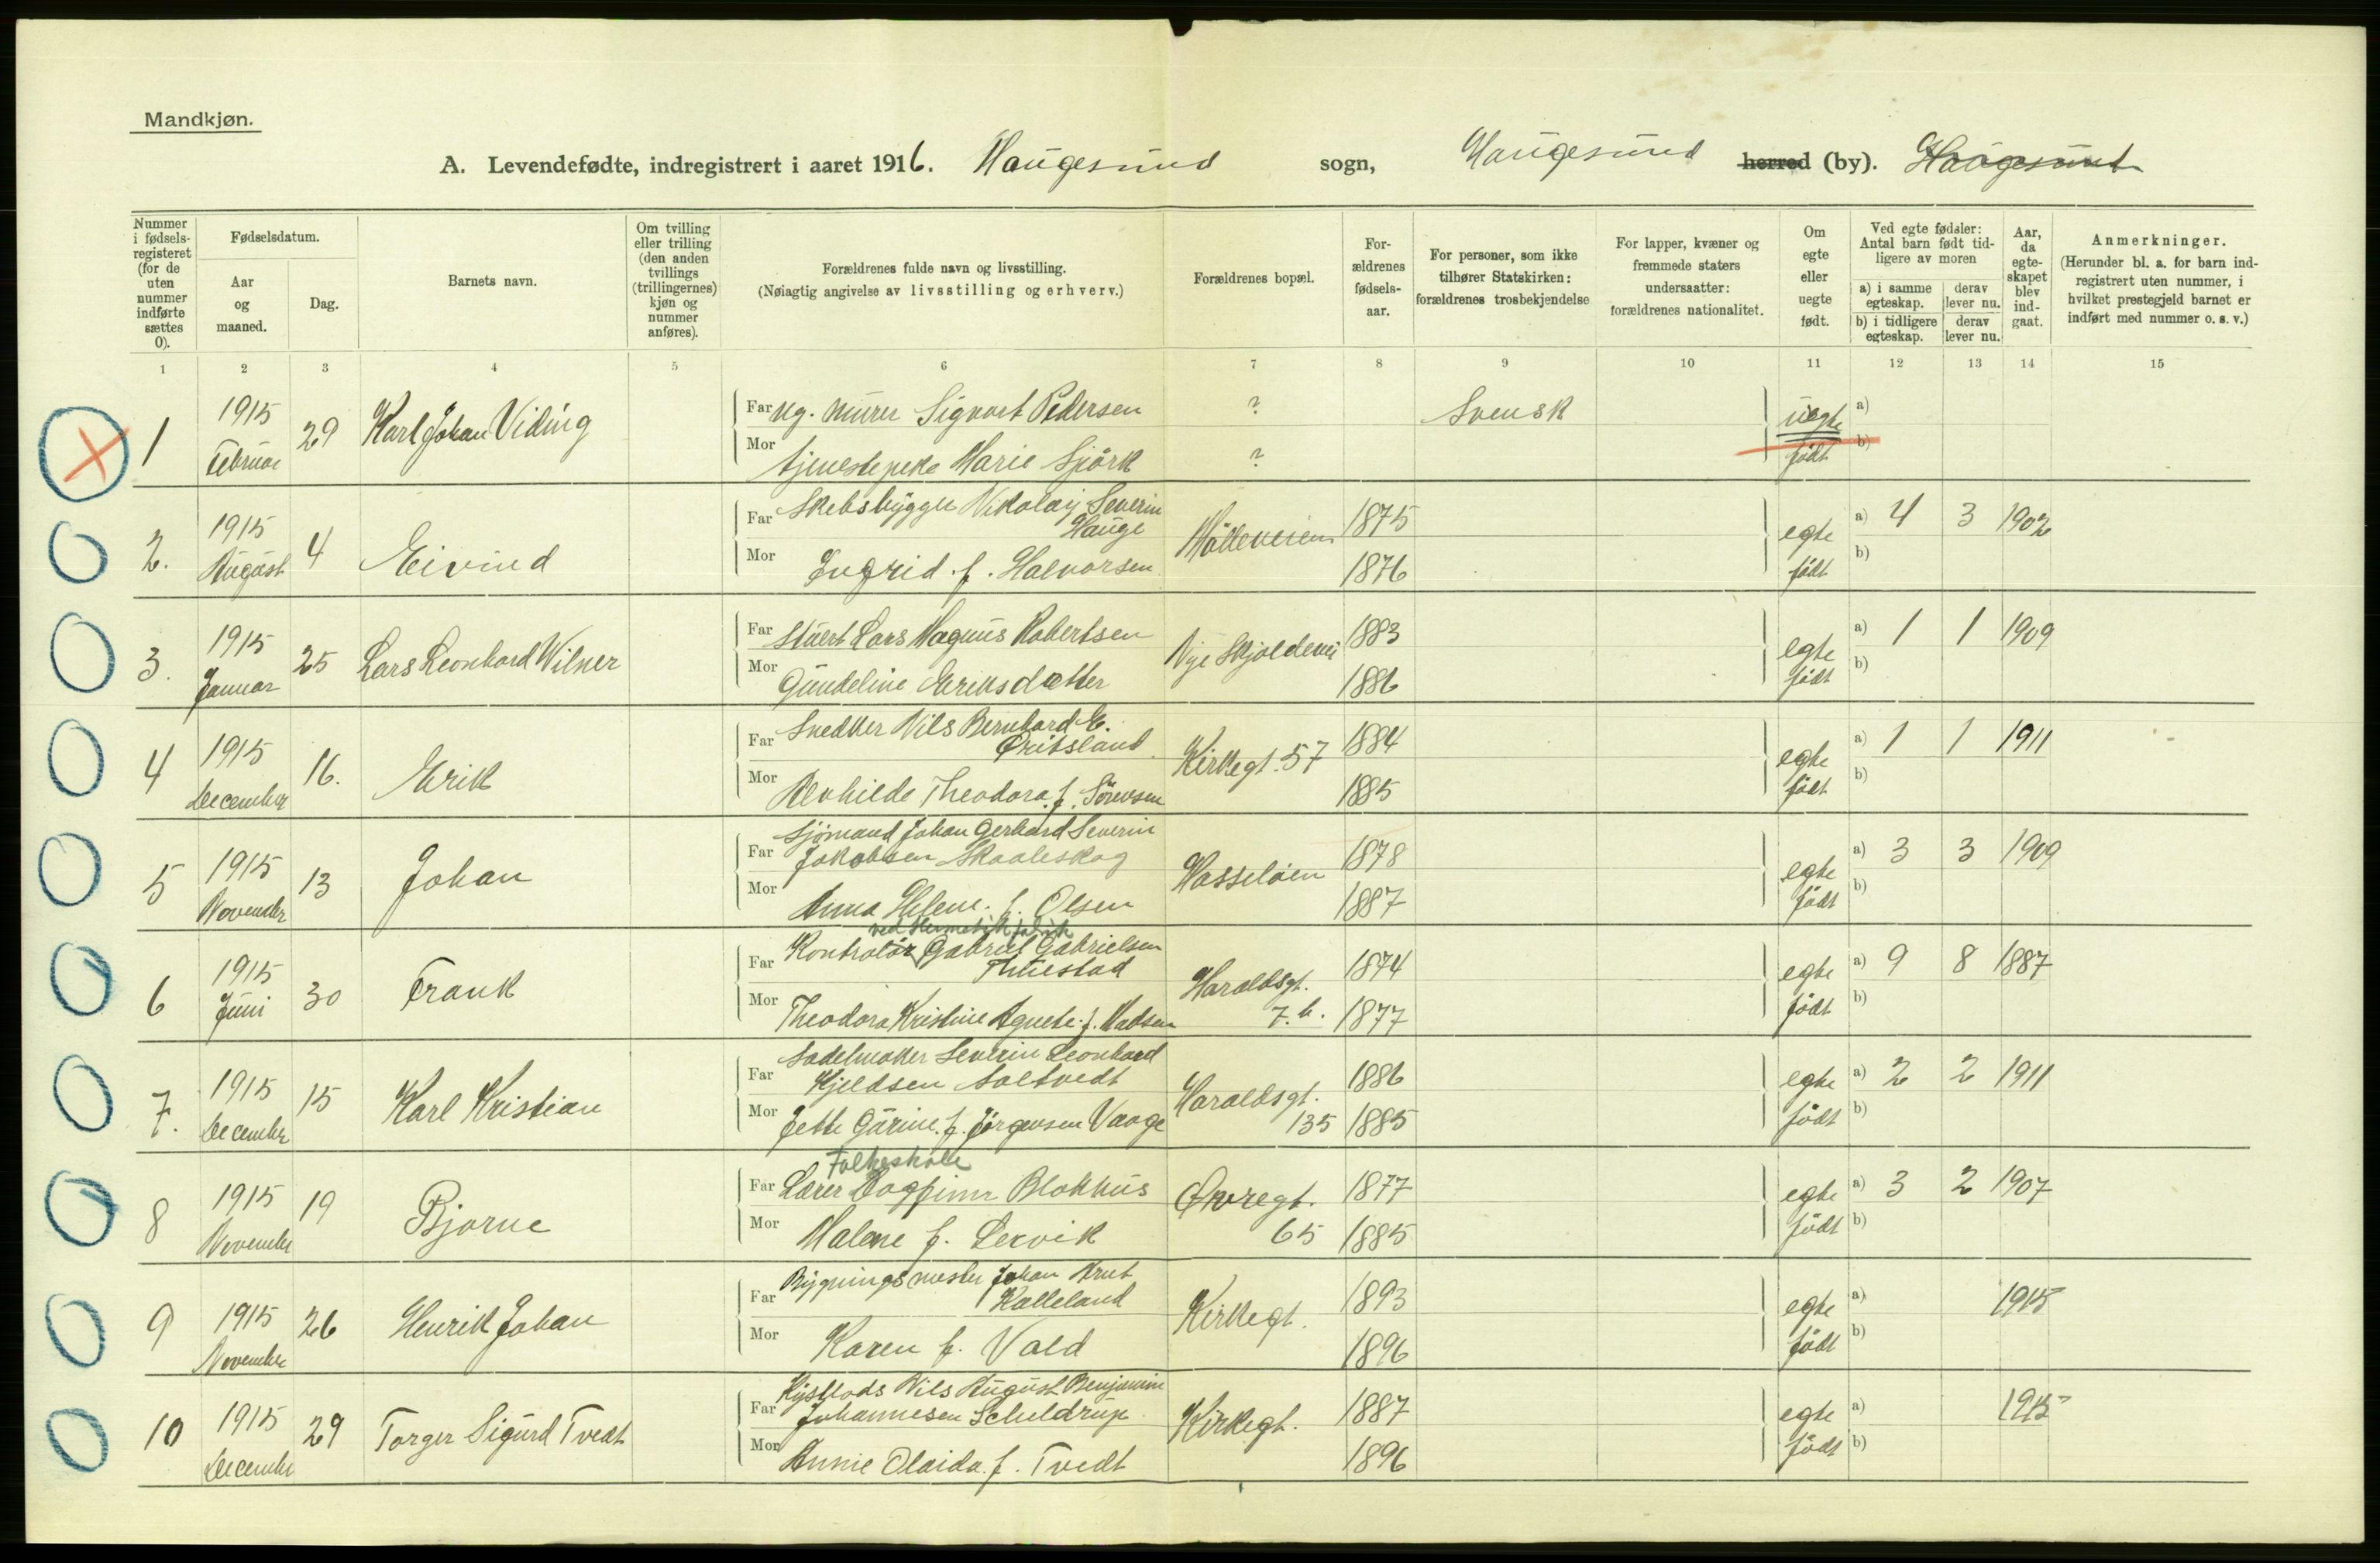 Mandkjøn.
A. Levendefødte, indregistrert i aaret 1916. Haugesund sogn, Haugesund herred (by). Haugesund
Nummer i fødsels-registeret (for de uten nummer indførte sættes 0).
Fødselsdatum.
Aar og maaned.
Dag.
Barnets navn.
Om tvilling eller trilling (den anden tvillings (trillingernes) kjøn og nummer anføres).
Forældrenes fulde navn og livsstilling.
(Nøiagtig angivelse av livsstilling og erhverv.)
Forældrenes bopæl.
For-ældrenes fødsels-aar.
For personer, som ikke tilhører Statskirken: forældrenes trosbekjendelse
For lapper, kvæner og fremmede staters undersaatter: forældrenes nationalitet.
Om egte eller uegte født.
Ved egte fødsler: Antal barn født tid-ligere av moren
a) i samme egteskap.
derav lever nu.
b) i tidligere egteskap.
derav lever nu.
Aar, da egte-skapet blev ind-gaat.
Anmerkninger.
(Herunder bl. a. for barn ind-registrert uten nummer, i hvilket prestegjeld barnet er indført med nummer o. s. v.)
1 2 3 4 5 6 7 8 9 10 11 12 13 14 15
1 1915 Februar 29 Karl Johan Viding
Far ug. murer Sigvart Pedersen ? Svensk uegte a)
Mor tjenestepike Marie Sjörk ? født b)
2. 1915 August 4 Eivind
Far Skebsbygger Nikolay Severin Hauge Mölleveien 1875 egte a) 4 3 1902
Mor Ingrid f. Halvorsen 1876 født b)
3. 1915 Januar 25 Lars Leonhard Wilner
Far Stuert Lars Magnus Robertsen Nye Skjoldevei 1883 egte a) 1 1 1909
Mor Gundeline Eriksdatter 1886 født b)
4 1915 December 16. Erik
Far Snedker Nils Bernhard E. Öritsland Kirkegt. 57 1884 egte a) 1 1 1911
Mor Alvhilde Theodora f. Sörensen 1885 født b)
5 1915 November 13 Johan
Far Sjömand Johan Gerhard Severin Jakobsen Skaaleskog Hasselöen 1878 egte a) 3 3 1909
Mor Anna Helene f. Olsen 1887 født b)
6 1915 Juni 30 Frank
ved Hermetikfabrik
Far Kontrolör Gabriel Gabrielsen Thuestad Haraldsgt. 7.b. 1874 egte a) 9 8 1887
Mor Theodora Kristine Agnete f. Madsen 1877 født b)
7. 1915 December 15 Karl Kristian
Far Sadelmaker Severin Leonhard Kjeldsen Saltvedt Haraldsgt. 135 1886 egte a) 2 2 1911
Mor Jette Gurine f. Jörgensen Vaage 1885 født b)
8 1915 November 19 Bjarne
Folkeskole
Far Lærer Dagfinn Blokhus Övregt. 65 1877 egte a) 3 2 1907
Mor Malene f. Lervik 1885 født b)
9 1915 November 26 Henrik Johan
Far Bygningsmester Johan Knut Kalleland Kirkegt. 1893 egte a) 1915
Mor Karen f. Vold 1896 født b)
10 1915 December 29 Torger Sigurd Tvedt
Far Kystlods Nils August Benjamin Johannesen Scheldrup Kirkegt. 1887 egte a) 1915
Mor Annie Olaida f. Tvedt 1896 født b)